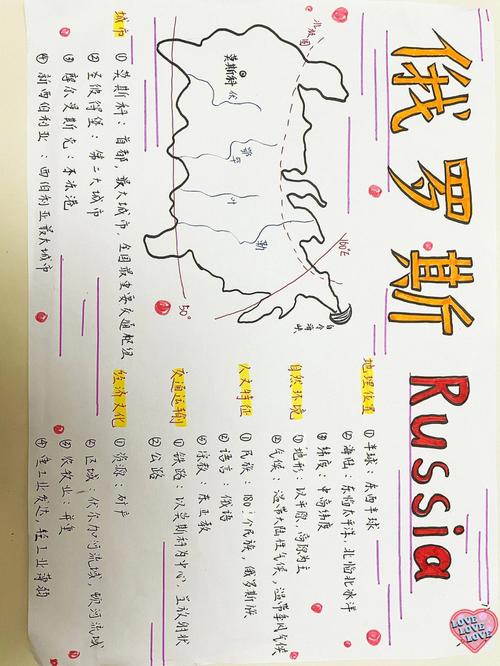 俄罗斯 Russia
北极圈
莫斯科
伏
鄂毕
叶
勒
160°E
白令海峡
50°
地理位置
①半球：东西半球
②海陆：东临太平洋，北临北冰洋
③纬度：中高纬度
自然环境
①地形：以平原、高原为主
②气候：温带大陆性气候，温带季风气候
人文特征
①民族：180个民族，俄罗斯族
②语言：俄语
③宗教：东正教
交通运输
①铁路：以莫斯科为中心 呈放射状
②公路
城市
①莫斯科：首都，最大城市，全国最重要交通枢纽
②圣彼得堡：第二大城市
③摩尔曼斯克：不冻港
④新西伯利亚：西伯利亚最大城市
经济文化
①资源：矿产
②区域：伏尔加河流域，顿河流域
③农牧业：并重
④重工业发达，轻工业薄弱
LOVE
LOVE
LOVE